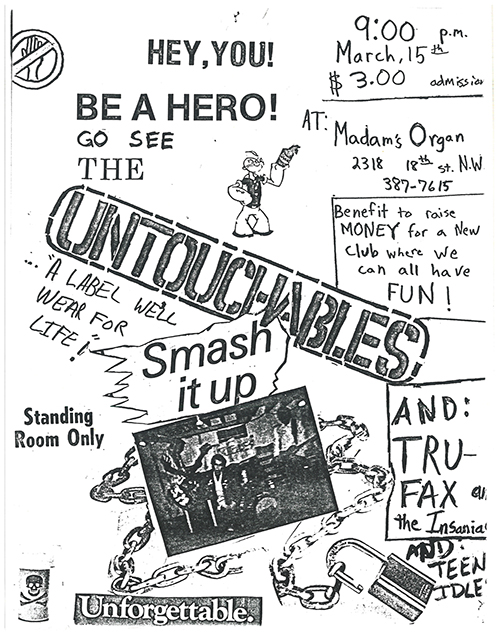 HEY, YOU!
BE A HERO!
GO SEE
THE
UNTOUCHABLES
... "A LABEL WE'LL
WEAR FOR
LIFE!"
Smash
it up
Standing
Room Only
Unforgettable.
9:00 p.m.
March, 15th
$3.00 admission
AT:
Madam's Organ
2318 18th st. N.W.
387-7615
Benefit to raise
MONEY for a New
Club where we
can all have
FUN!
AND:
TRU-
FAX
the Insania
AND:
TEEN
IDLE